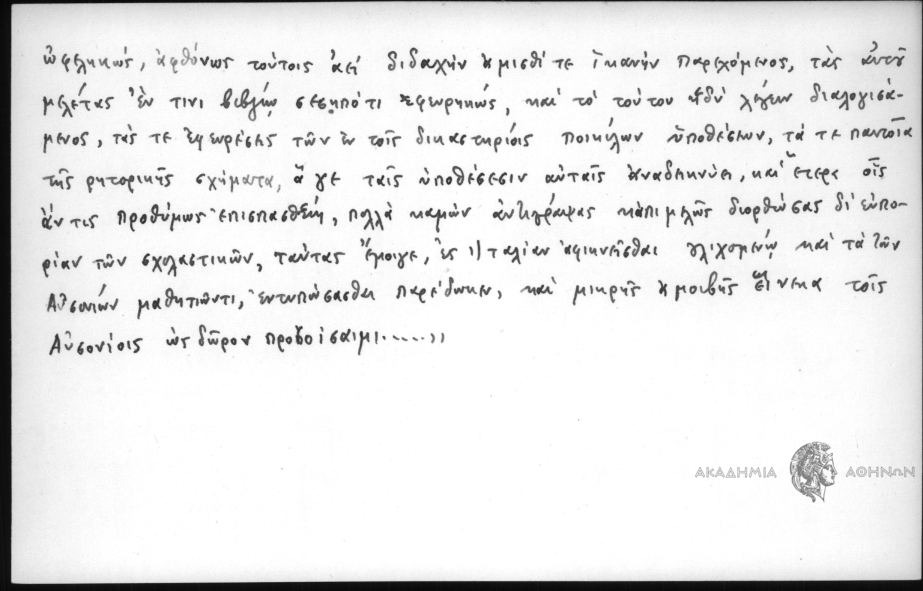 ὠφεληκώς, ἀφθόνως τούτοις ἀεὶ διδαχὴν ἀμισθί τε ἱκανὴν παρεχόμενος, τὰς αὐτοῦ
μελέτας ἔν τινι βιβλίῳ σεσηπότι ἐφευρηκώς, καὶ τὸ τούτου ἡδὺ λέγειν διαλογισά-
μενος, τάς τε ἐφευρέσεις τῶν ἐν τοῖς δικαστηρίοις ποικίλων ὑποθέσεων, τά τε παντοῖα
τῆς ρητορικῆς σχήματα, ἅ γε ταῖς ὑποθέσεσιν αὐταῖς ἀναδεικνύει, καὶ ἕτερα οἷς
ἄν τις προθύμως ἐπισπασθείη, πολλὰ καμὼν ἀντιγράψας κἀπιμελῶς διορθώσας δι' εὐπο-
ρίαν τῶν σχολαστικῶν, ταύτας ἔμοιγε, ἐς Ἰταλίαν ἀφικνεῖσθαι γλιχομένῳ καὶ τὰ τῶν
Αὐσονίων μαθητιῶντι, ἐντυπώσασθαι παρέδωκεν, καὶ μικρῆς ἀμοιβῆς εἵνεκα τοῖς
Αὐσονίοις ὡς δῶρον προσοίσαιμι.....»
ΑΚΑΔΗΜΙΑ ΑΘΗΝΩΝ